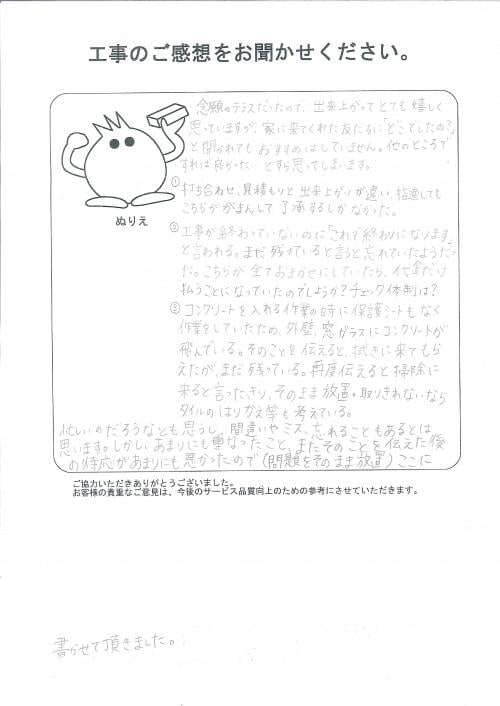 工事のご感想をお聞かせください。
念願のテラスだったので、出来上がってとても嬉しく
思っていますが、家に来てくれた友だちに「どこでしたの?」
と聞かれてもおすすめはしていません。他のところで
すれば良かった…とすら思ってしまいます。
①打ち合わせ、見積もりと出来上がりが違い、指適しても
こちらががまんして了承するしかなかった。
②工事が終わっていないのに「これで終わりになります」
と言われる。まだ残っていると言うと忘れていたようだっ
た。こちらが全ておまかせにしていたら、代金だけ
払うことになっていたのでしょうか?チェック体制は?
③コンクリートを入れる作業の時に保護シートもなく
作業をしていたため、外壁、窓ガラスにコンクリートが
飛んでいる。そのことを伝えると、拭きに来てもら
えたが、まだ残っている。再度伝えると掃除に
来ると言ったきり、そのまま放置。取りきれないなら
タイルのはりかえ等も考えている。
忙しいのだろうなとも思うし、間違いやミス、忘れることもあるとは
思います。しかし、あまりにも重なったこと、またそのことを伝えた後
の対応があまりにも悪かったので(問題をそのまま放置)ここに
ぬりえ
ご協力いただきありがとうございました。
お客様の貴重なご意見は、今後のサービス品質向上のための参考にさせていただきます。
書かせて頂きました。